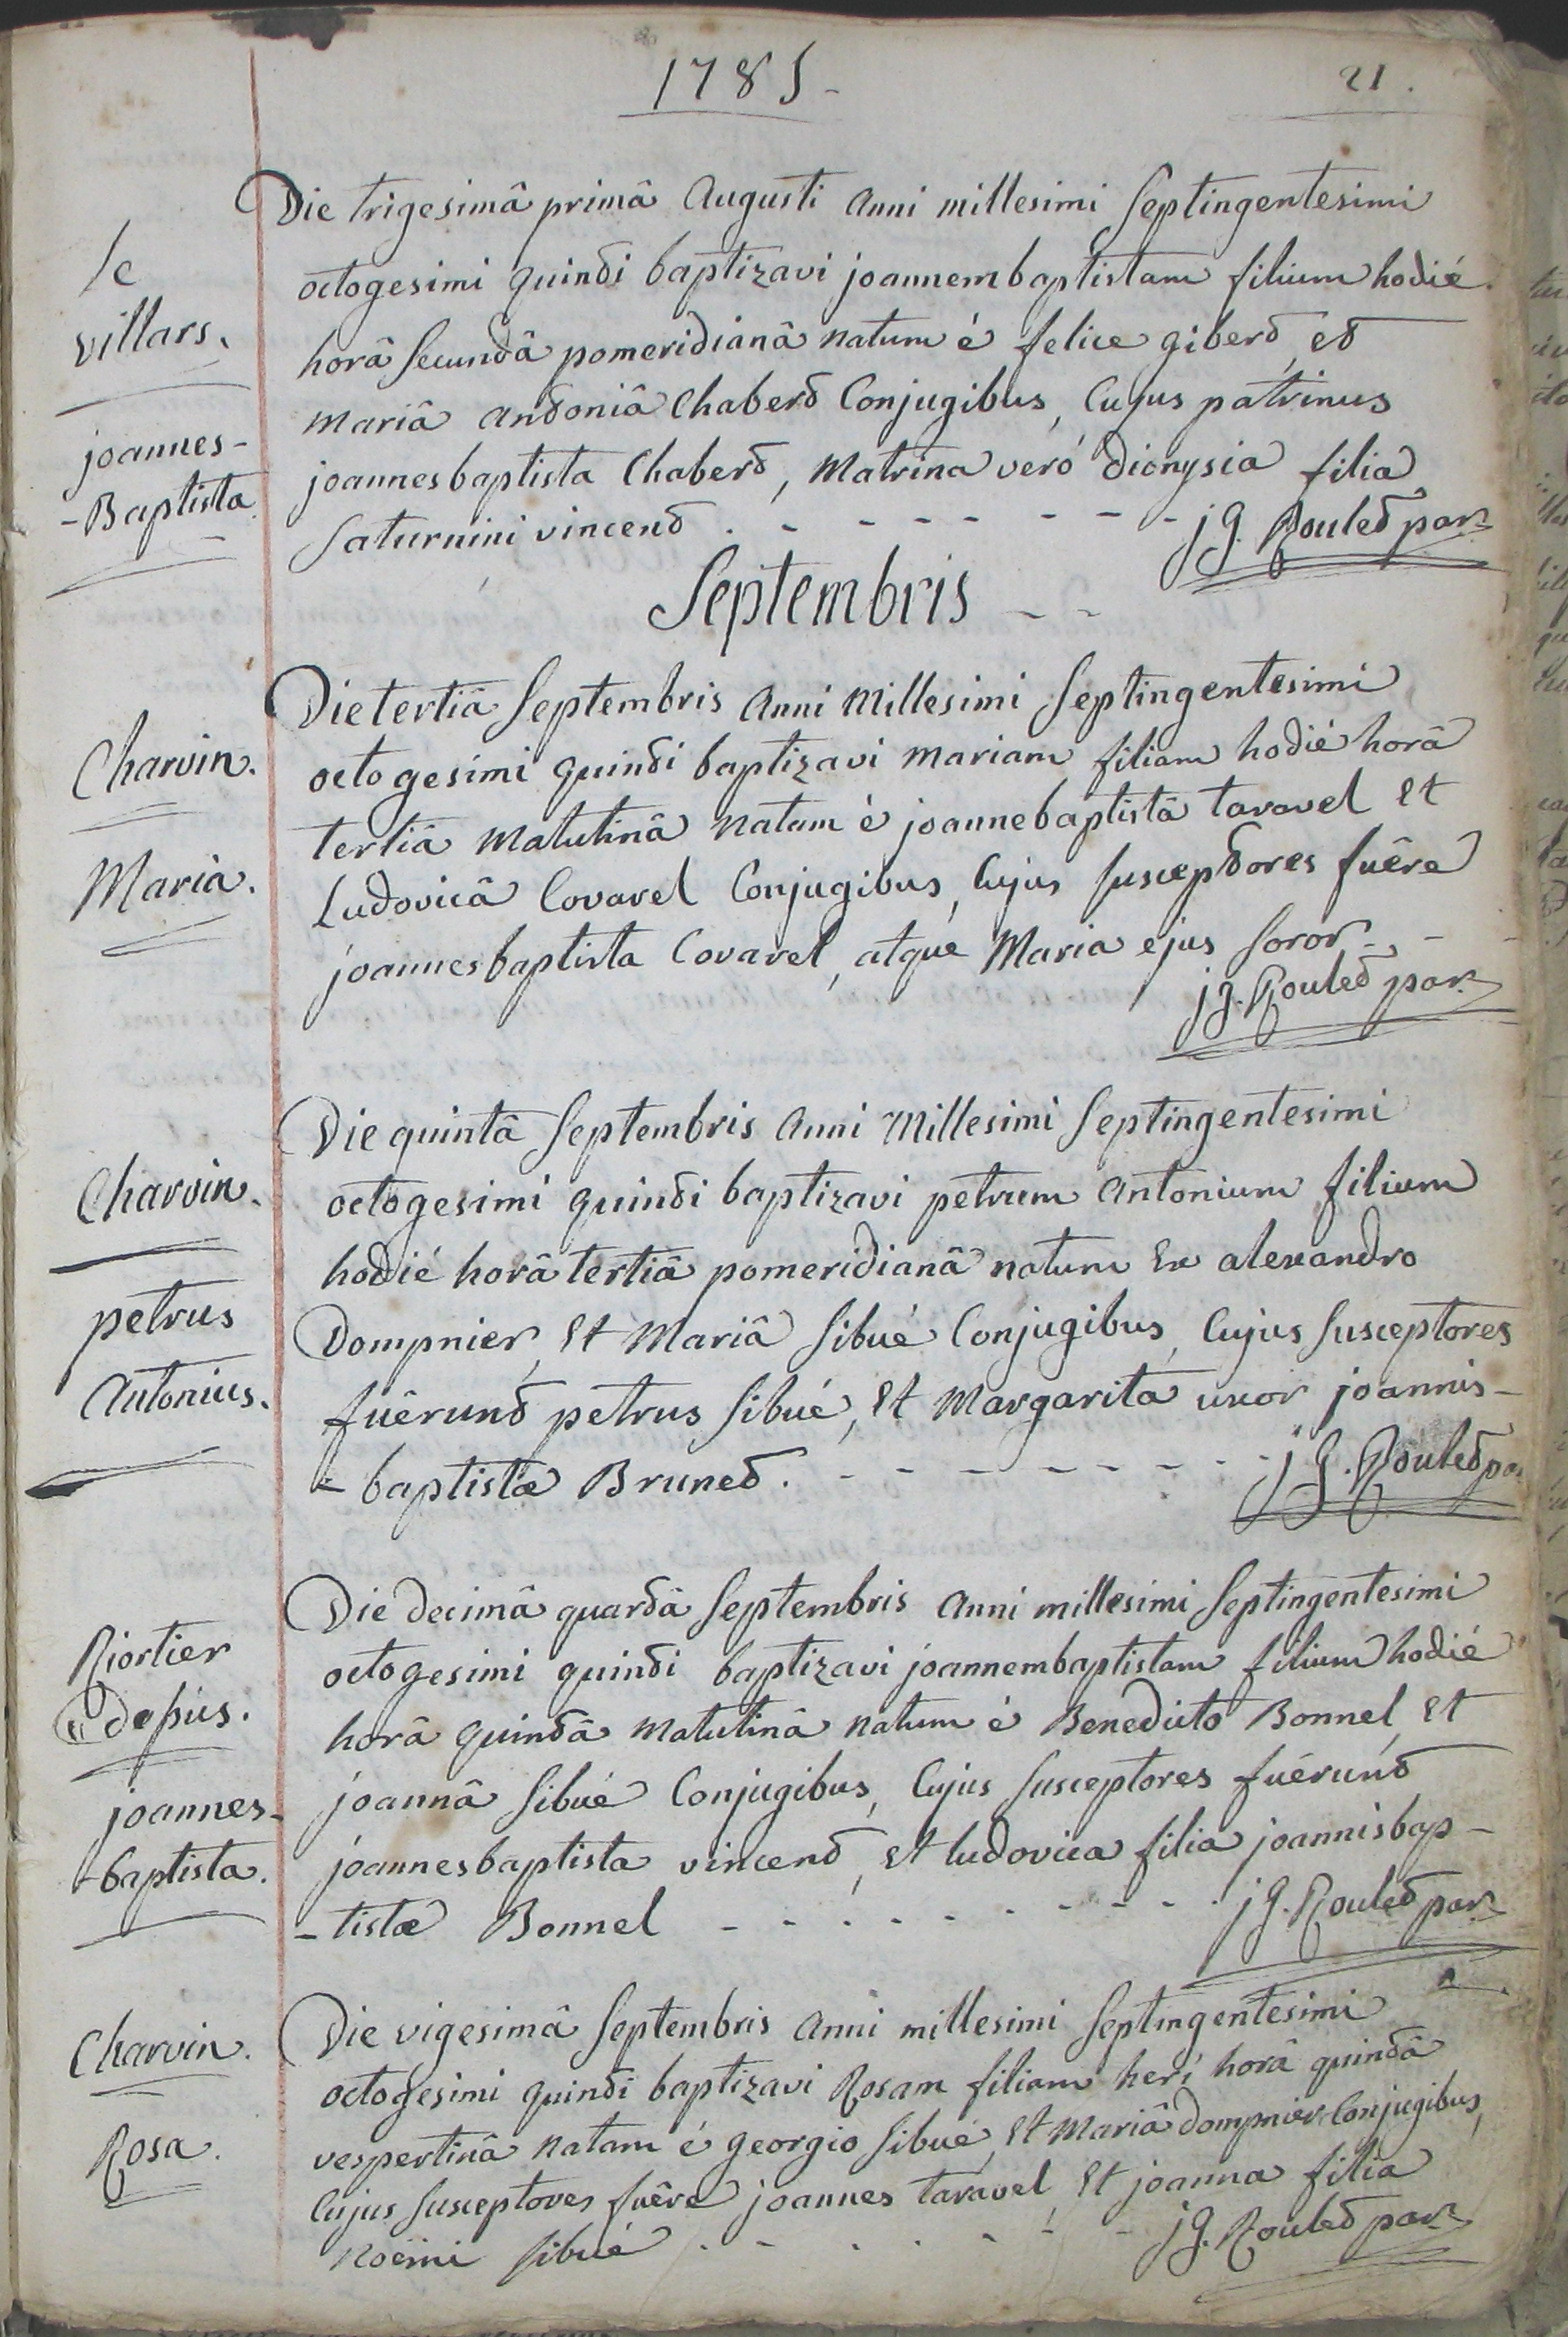 1785
21.
Die trigesimâ primâ Augusti Anni millesimi Septingentesimi
octogesimi quinti baptizavi joannem baptistam filium hodié
horâ Secundâ pomeridianâ natum é felice gibert, et
mariâ antoniâ Chabert Conjugibus, Cujus patrinus
joannes baptista Chabert, Matrina veró dionysia filia
Saturnini vincent . - - - - - - - j g. Roulet par.
le
villars.
joannes-
-Baptista
Septembris - -
Die tertiâ Septembris Anni Millesimi Septingentesimi
octogesimi quinti baptizavi mariam filiam hodié horâ
tertiâ Matutinâ Natam é joannebaptistâ taravel Et
Ludovicâ Covarel Conjugibus, Cujus Susceptores fuêre
joannes baptista Covarel, atque Maria ejus Soror - - -
j g. Roulet par.
Charvin.
Maria.
Die quintâ Septembris Anni Millesimi Septingentesimi
octogesimi quinti baptizavi petrum Antonium filium
hodié horâ tertiâ pomeridianâ natum Ex alexandro
Dompnier, Et Mariâ Sibué Conjugibus, Cujus Susceptores
fuêrunt petrus Sibué, Et Margarita uxor joannis-
- baptistæ Brunet. - - - - - - - - - j g. Roulet par
Charvin.
petrus
Antonius.
Die decimâ quartâ Septembris Anni millesimi Septingentesimi
octogesimi quinti baptizavi joannembaptistam filium hodié
horâ quintâ Matutinâ natum é Benedicto Bonnel, Et
joannâ Sibué Conjugibus, Cujus Susceptores fuêrunt
joannesbaptista vincent, Et ludovica filia joannisbap-
-tistæ Bonnel - - - - - - - - - - j g. Roulet par.
Riortier
joannes-
-baptista.
Die vigesimâ Septembris Anni millesimi Septingentesimi
octogesimi quinti baptizavi Rosam filiam heri horâ quintâ
vespertinâ natam é georgio Sibué, Et Mariâ dompnier Conjugibus,
Cujus Susceptores fuêre joannes taravel, Et joanna filia
Noëmi Sibué . - . . - - - j g. Roulet par.
Charvin.
Rosa.